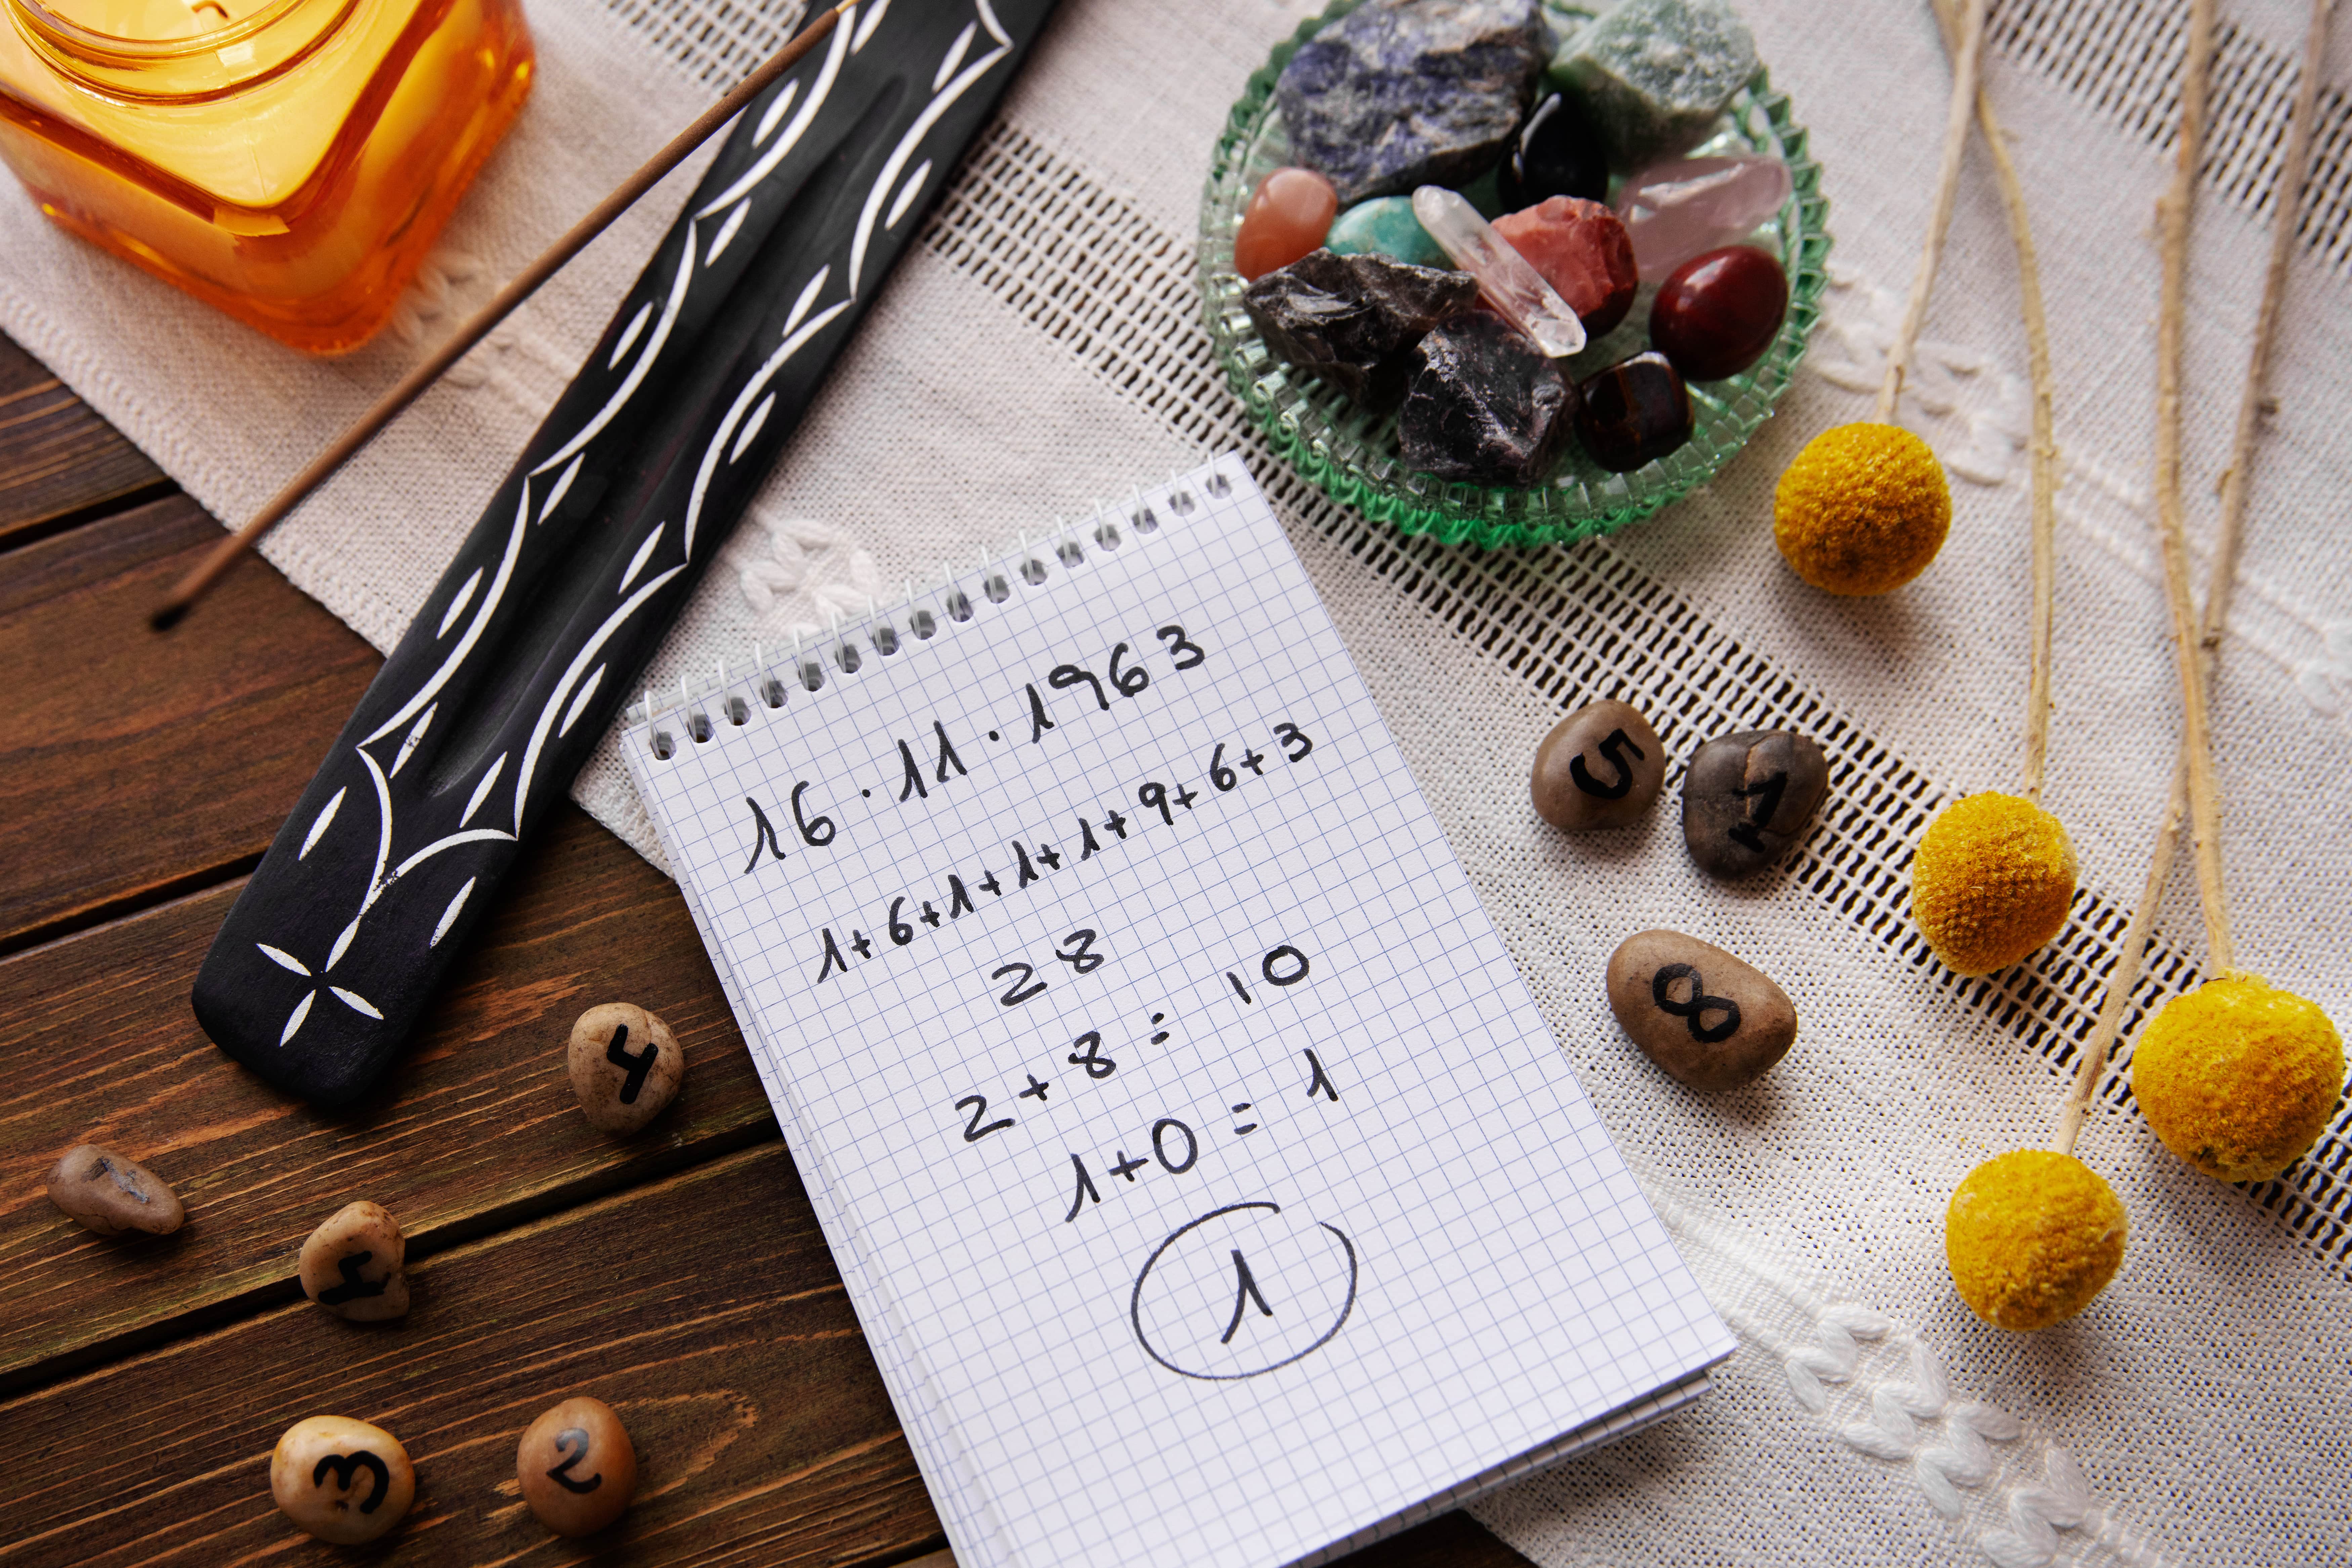 16.11.1963
1+6+1+1+1+9+6+3
28
2+8=10
1+0=1
1
5
1
8
4
1
3
2